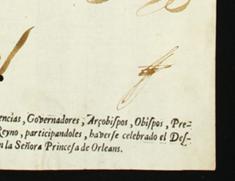 encias, Governadores, Arçobiſpos, Obiſpos, Pre-
Reyno, participandoles, haverſe celebrado el Deſ-
n la Señora Princeſa de Orleans.